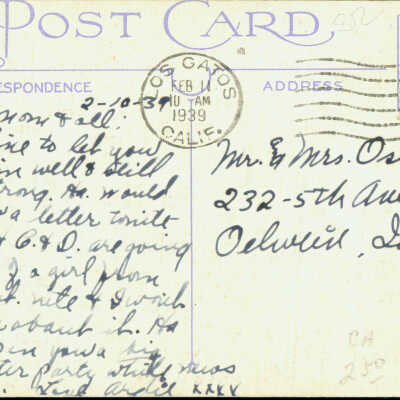 POST CARD
RESPONDENCE
ADDRESS
LOS GATOS
FEB 11
10 AM
1939
CALIF.
2-10-39
Mom & all:
ine to let you
m well & still
rong. Ha. Would
a letter
C. & D. are going
a girl from
nite & I work
about it. Ha
you a big
ter party while
Love XXXX
Mr. & Mrs. Os
232-5th Ave
Oelwein, Io
CA
250